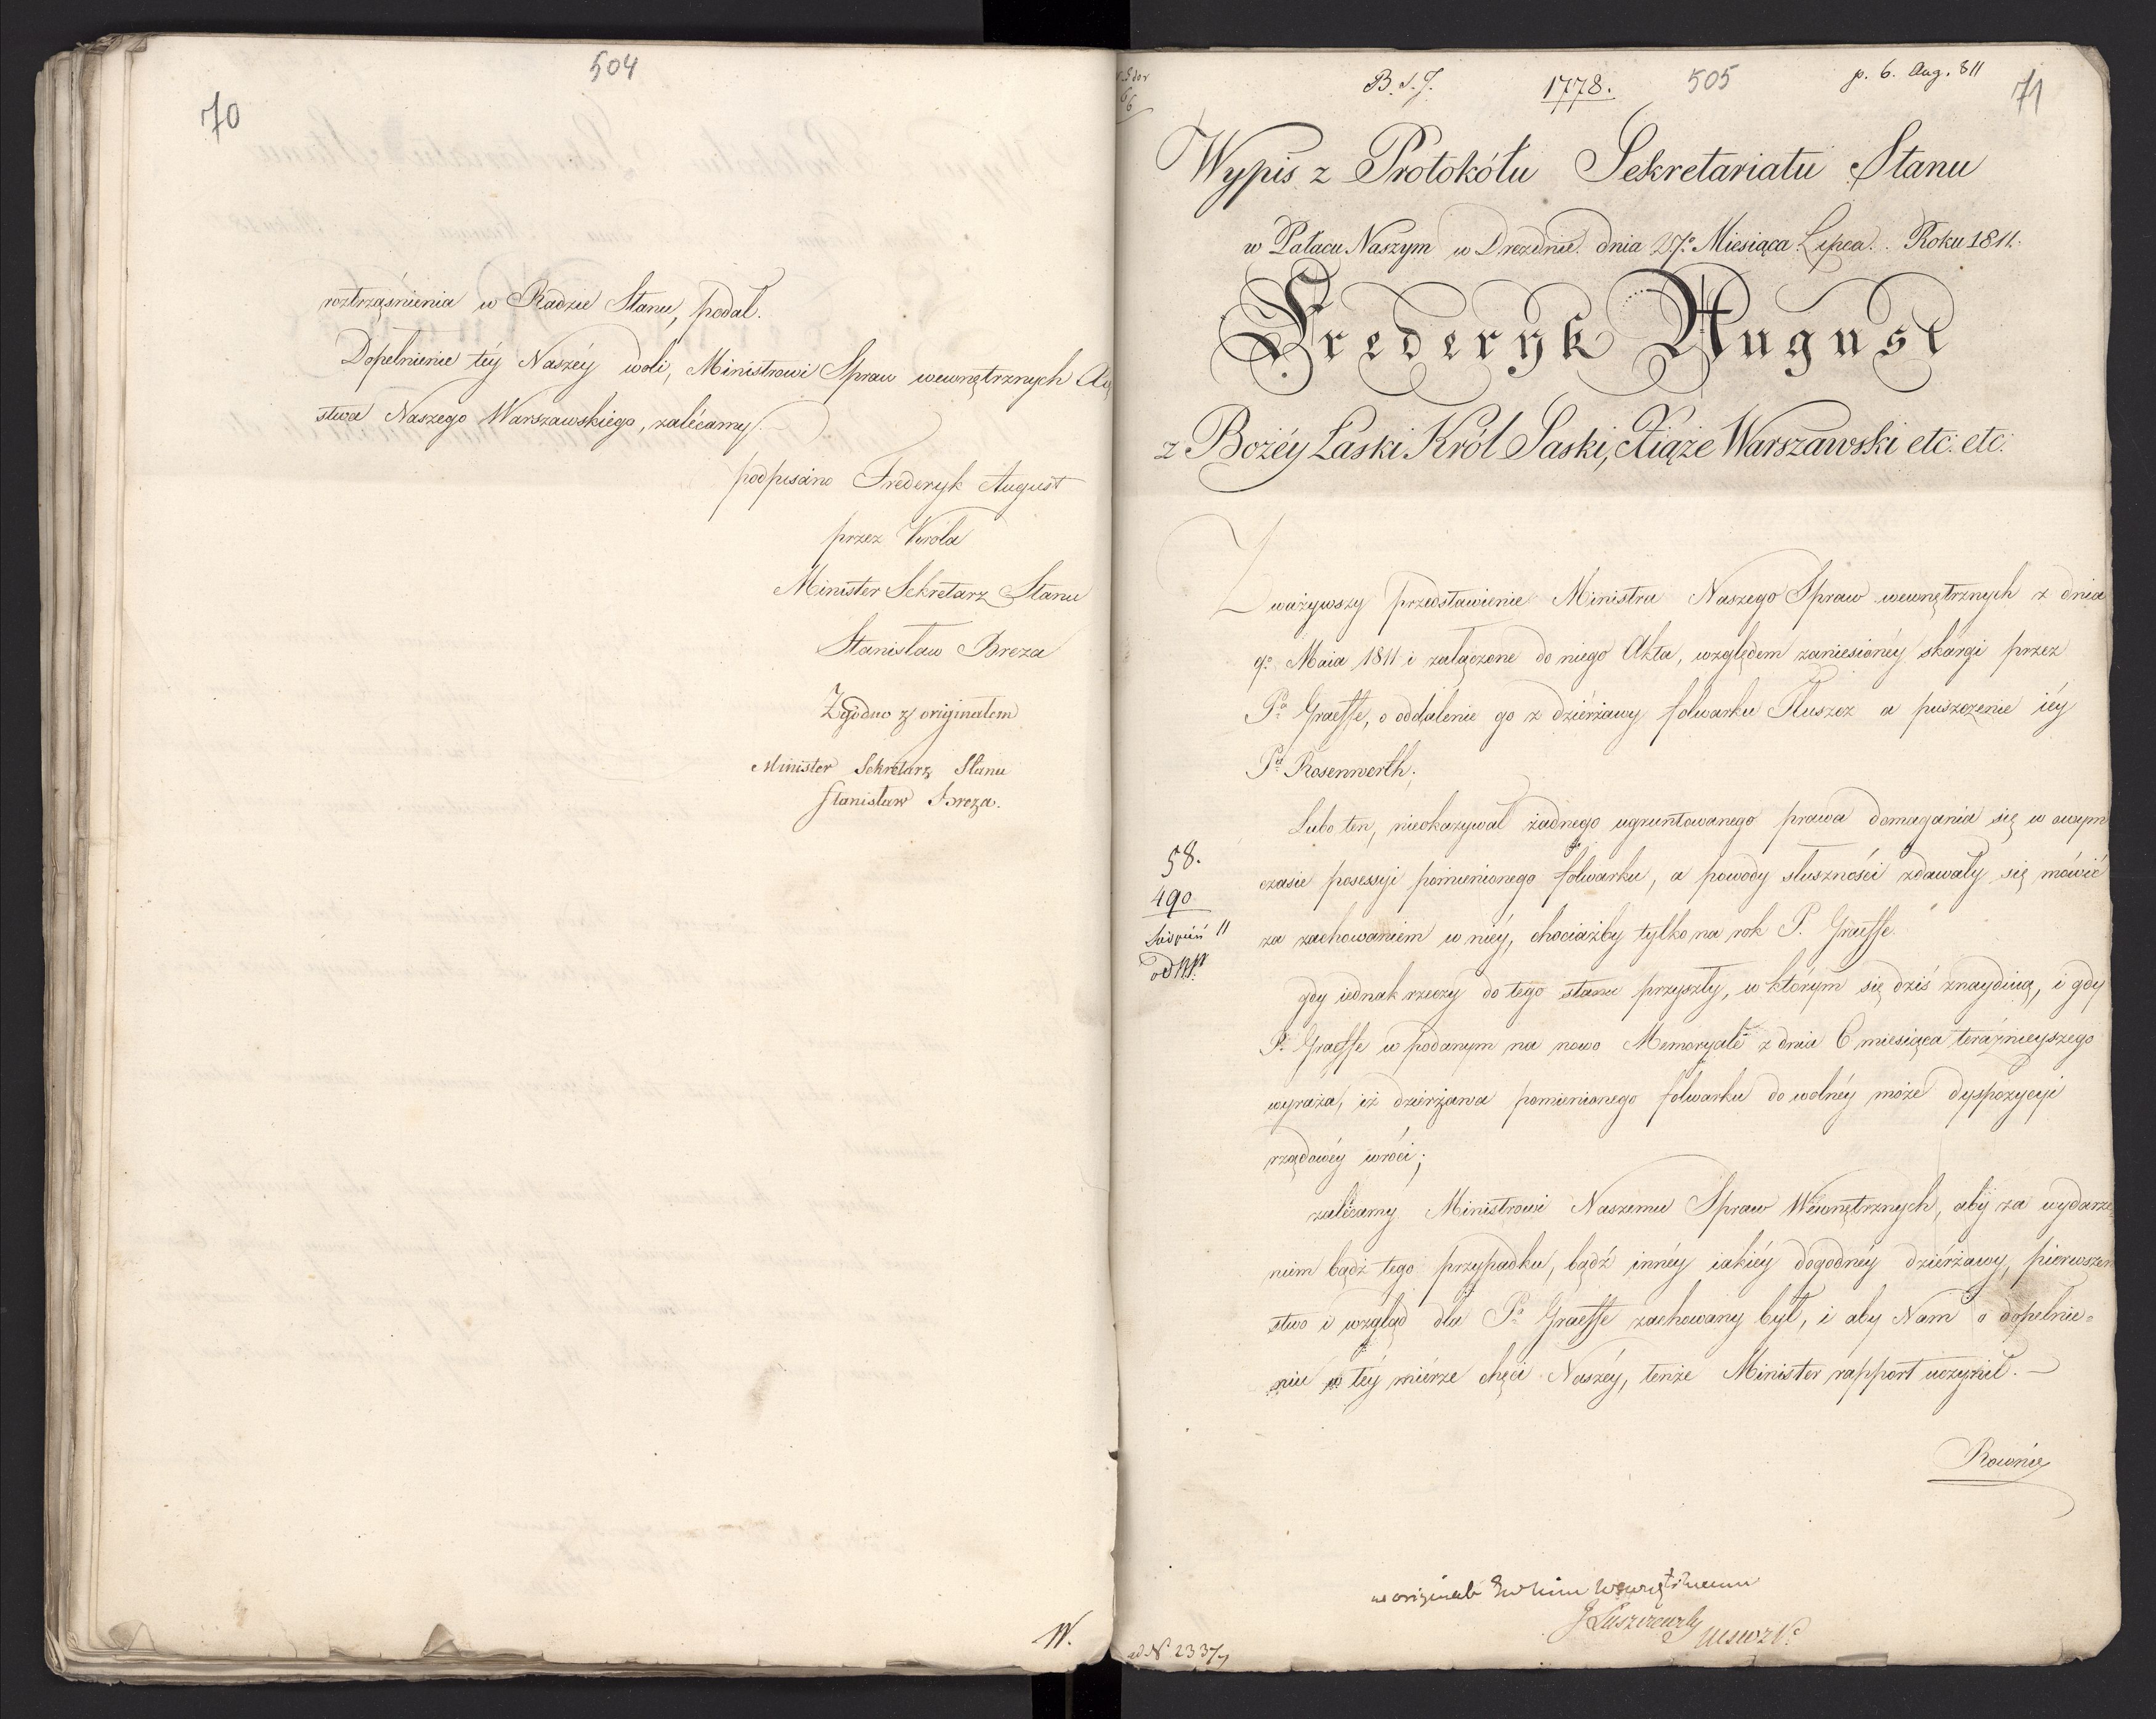 504
70
roztrząśnienia w Radzie Stanu, podał.
Dopełnienie téy Naszéy woli, Ministrowi Spraw wewnętrznych
stwa Naszego Warszawskiego, zalécamy.
podpisano Frederyk August
przez Króla
Minister Sekretarz Stanu
Stanisław Breza
Zgodno z originałem
Minister Sekretarz Stanu
Stanisław Breza.
W.
B. S. J. 1778. 505 p. 6. Aug. 811 71
Wypis z Protokółu Sekretariatu Stanu
w Pałacu Naszym w Dreznie dnia 27º Miesiąca Lipca Roku 1811.
Frederyk August
z Bożéy Łaski Król Saski, Xiąże Warszawski etc: etc:
Zważywszy przedstawienie Ministra Naszego Spraw wewnętrznych z dnia
9º Maia 1811 i załączone do niego Akta, względem zaniesionéy skargi przez
Pª Graeffe, o oddalenie go z dziérżawy folwarku Tłuszcz a puszczenie iéy
Rosenwerth;
Lubo ten, nieokazywał żadnego ugruntowanego prawa domagania się w owym
czasie posessyi pomienionego folwarku, a powody słuszności zdawały się mówić
za zachowaniem w niéy, chociażby tylko na rok P. Graeffe.
58.
490
Sierpień 11
gdy iednak rzeczy do tego stanu przyszły, w którym się dziś znayduią, i gdy
P. Graeffe w podanym na nowo Memoryale z dnia 6 miesiąca teráźnieyszego
wyraża, iż dzierżawa pomienionego folwarku do wolnéy może dyspozycyi
rządowéy wróci;
zalécamy Ministrowi Naszemu Spraw Wewnętrznych, aby za wydarze
niem bądź tego przypadku, bądź innéy iakiéy dogodnéy dziérżawy, pierwszeń
stwo i wzgląd dla Pª Graeffe zachowany był, i aby Nam o dopełnie-
niu w téy miérze chęci Naszéy, tenże Minister rapport uczynił. —
Rownie
w originale
J Łuszczewski
ad Nº 2337